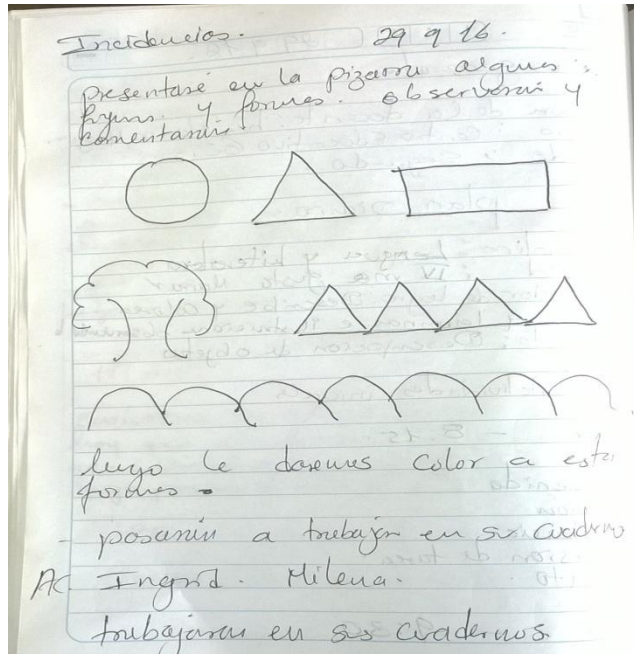 Incidencias. 29 9 16.
presentaré en la pizarra algunas
y formas. observarán y
comentarán.
luego le daremos color a esta
formas -
- pasarán a trabajar en su cuaderno
AC Ingrid. Milena.
trabajaran en sus cuadernos